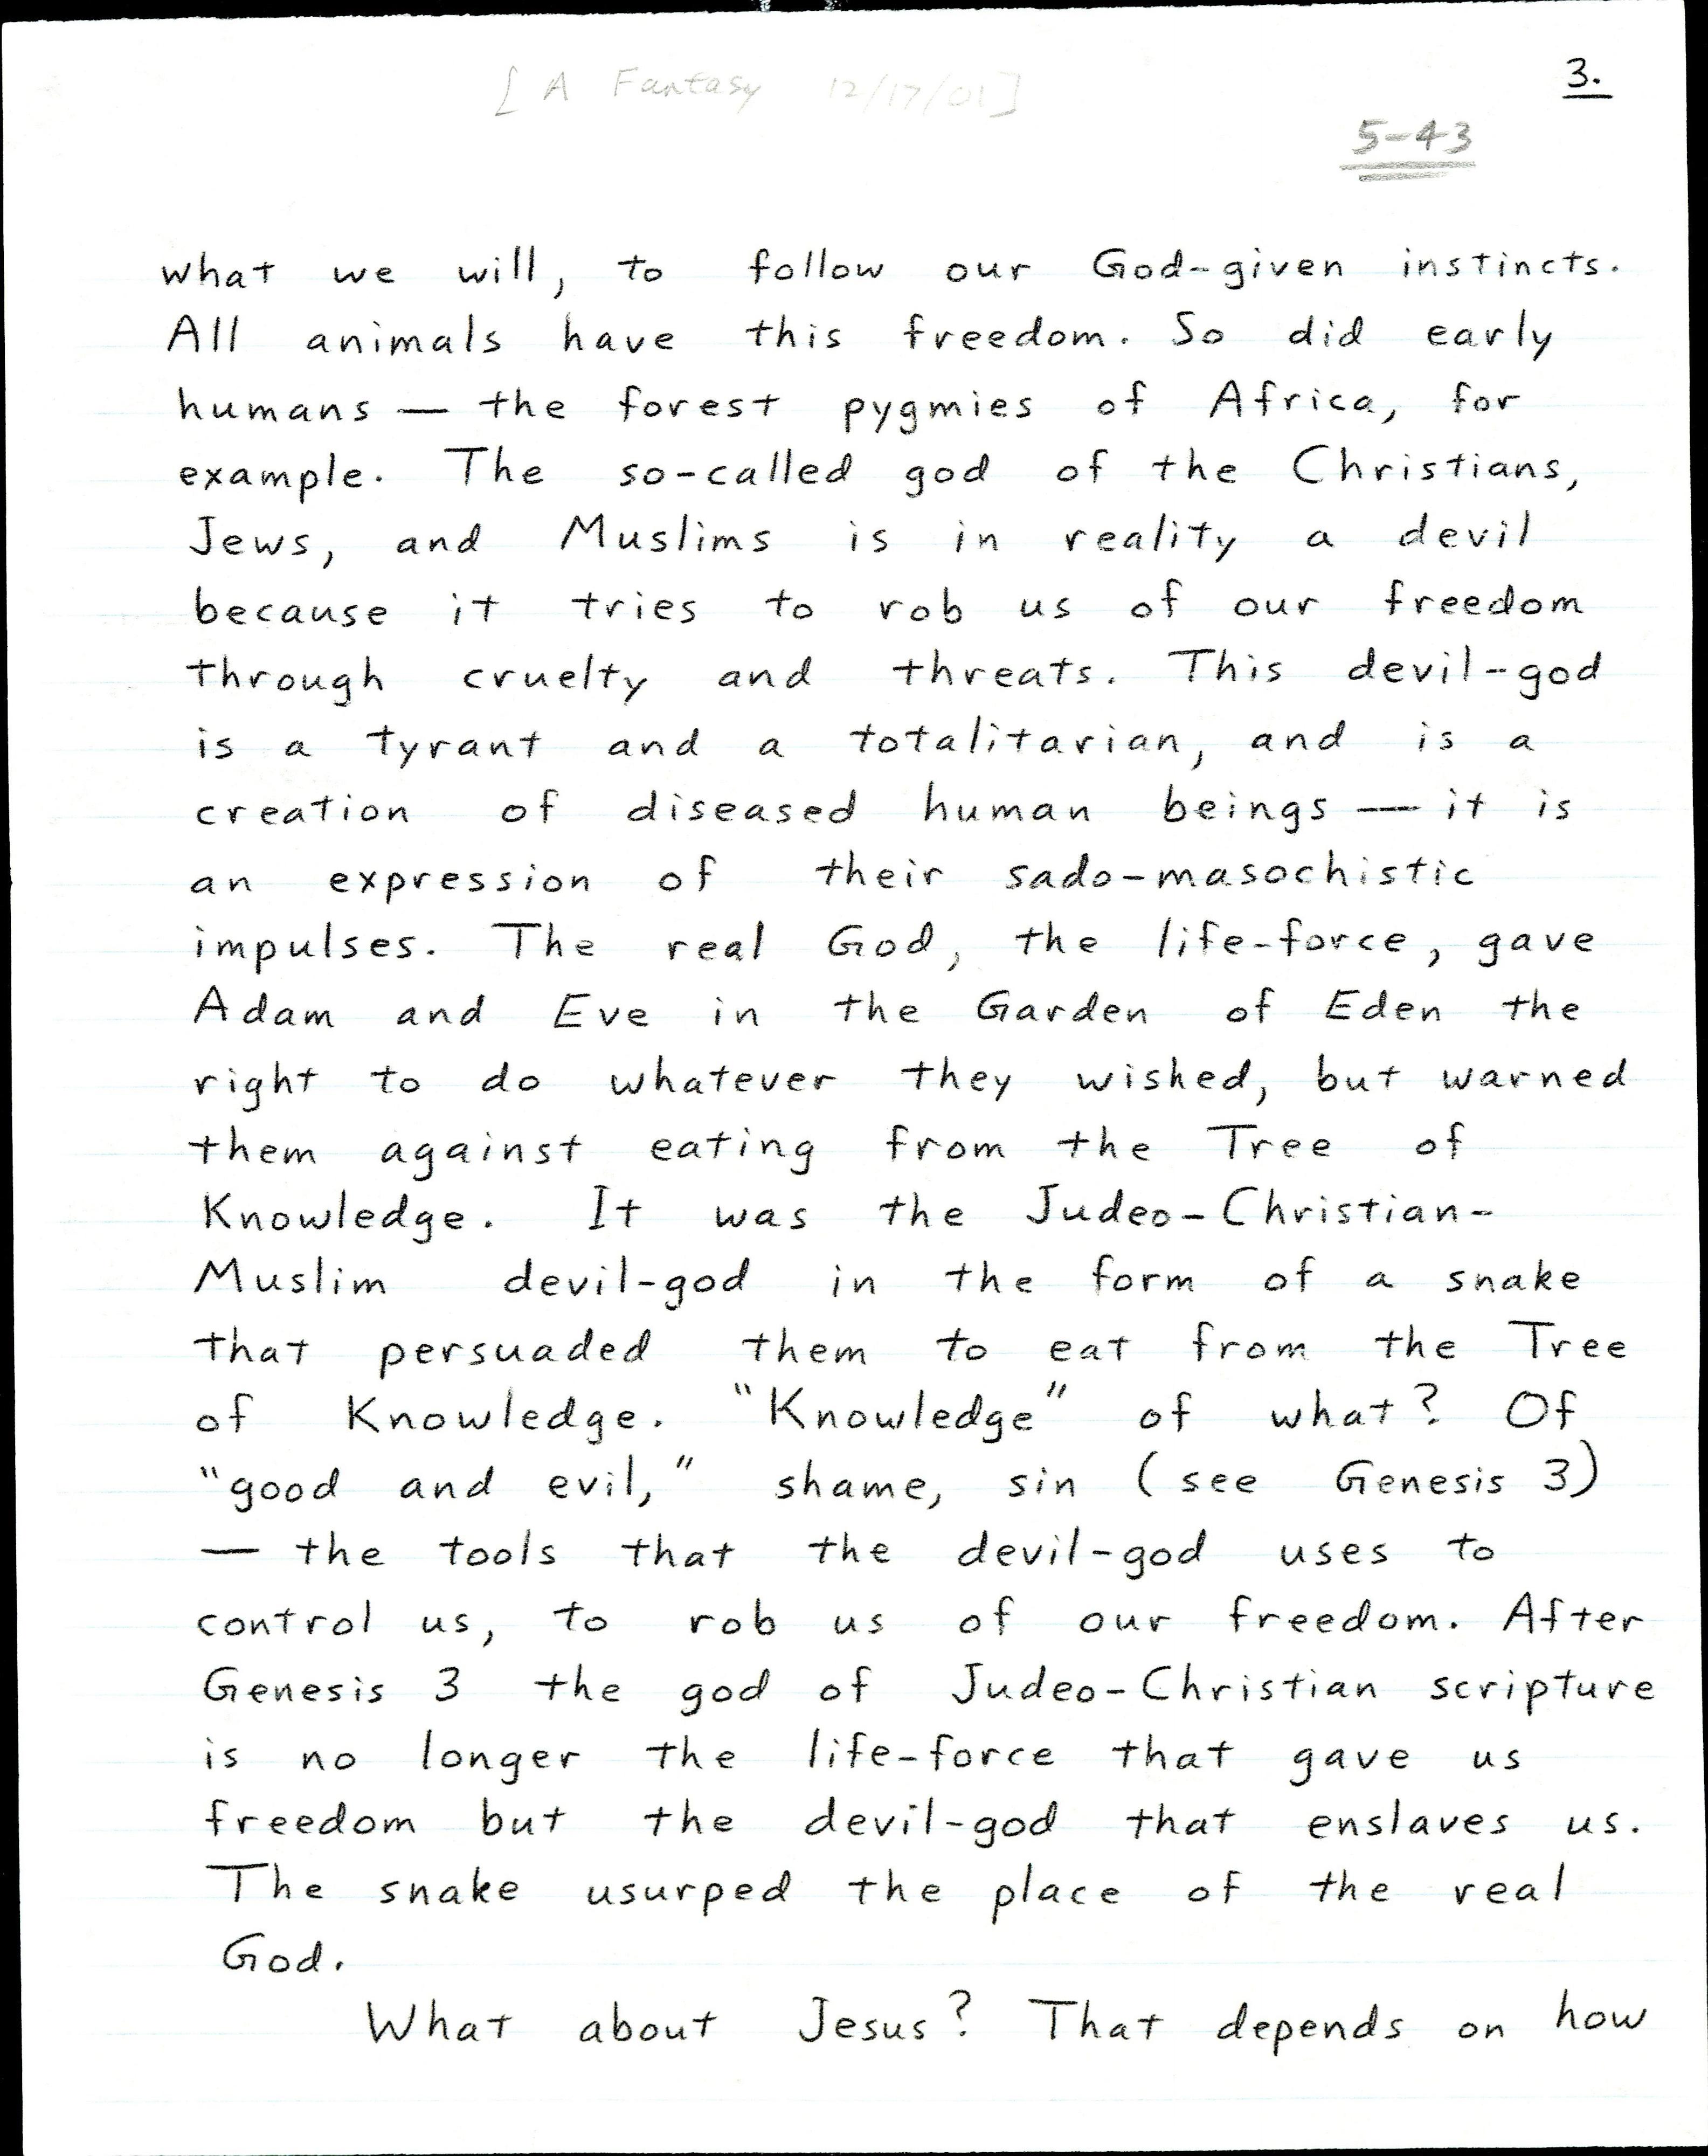 [A Fantasy 12/17/01]
3.
5-43
what we will, to follow our God-given instincts.
All animals have this freedom. So did early
humans — the forest pygmies of Africa, for
example. The so-called god of the Christians,
Jews, and Muslims is in reality a devil
because it tries to rob us of our freedom
through cruelty and threats. This devil-god
is a tyrant and a totalitarian, and is a
creation of diseased human beings — it is
an expression of their sado-masochistic
impulses. The real God, the life-force, gave
Adam and Eve in the Garden of Eden the
right to do whatever they wished, but warned
them against eating from the Tree of
Knowledge. It was the Judeo-Christian-
Muslim devil-god in the form of a snake
that persuaded them to eat from the Tree
of Knowledge. "Knowledge" of what? Of
"good and evil," shame, sin (see Genesis 3)
— the tools that the devil-god uses to
control us, to rob us of our freedom. After
Genesis 3 the god of Judeo-Christian scripture
is no longer the life-force that gave us
freedom but the devil-god that enslaves us.
The snake usurped the place of the real
God.
What about Jesus? That depends on how